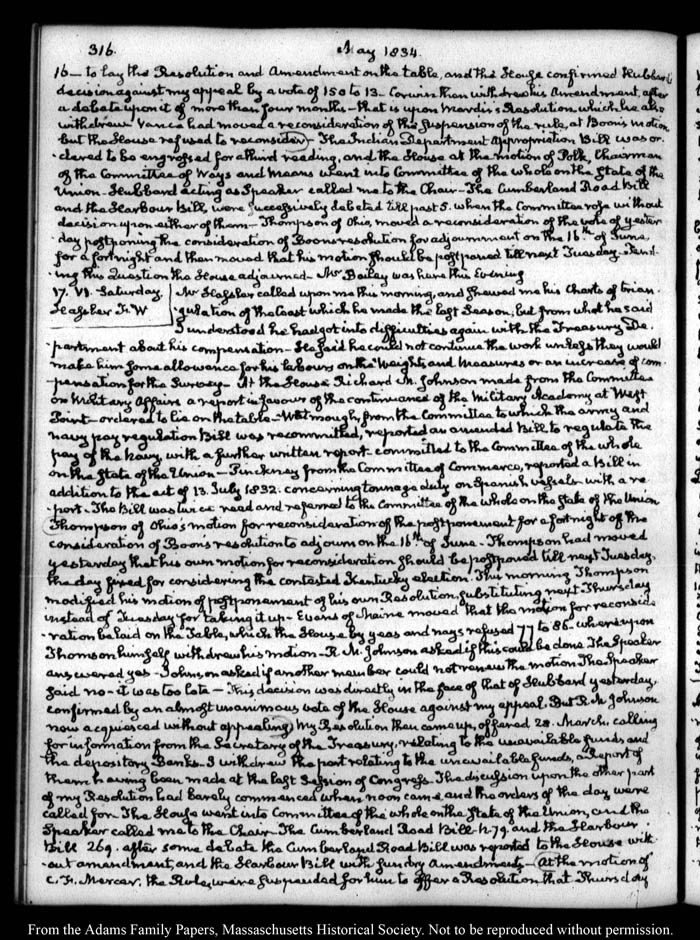 316.
May 1834.
16— to lay the Resolution and Amendment on the table, and the House confirmed Hubbard's
decision against my appeal by a vote of 150 to 13— Corwin then withdrew his Amendment, after
a debate upon it of more than four months— that is upon Mardis's Resolution which he also
withdrew. Vance had moved a reconsideration of the suspension of the rule, at Boon's motion
but the House refused to reconsider— The Indian Department Appropriation Bill was or-
-dered to be engrossed for a third reading, and the House at the motion of Polk, Chairman
of the Committee of Ways and Means went into Committee of the whole on the State of the
Union— Hubbard acting as Speaker called me to the Chair— The Cumberland Road Bill
and the Harbour Bill, were successively debated till past 5. when the Committee rose without
decision upon either of them— Thompson of Ohio, moved a reconsideration of the vote of yester-
-day postponing the consideration of Boon's resolution for adjournment on the 16th of June,
for a fortnight and then moved that his motion should be postponed till next Tuesday. Pend-
-ing this Question the House adjourned— Mr Bailey was here this Evening
17. VI. Saturday. Mr Hassler called upon me this morning, and shewed me his Charts of trian-
Hassler F. W -gulation of the Coast which he made the last Season, but from what he said
I understood he had got into difficulties again with the Treasury De-
-partment about his compensation— He said he could not continue the work unless they would
make him some allowance for his labours on the Weights and Measures or an increase of com-
-pensation for the Survey— At the House Richard M. Johnson made from the Committee
on Military Affairs a report in favour of the continuance of the Military Academy at West
Point— ordered to lie on the table— Watmough, from the Committee to which the army and
navy pay regulation Bill was recommitted, reported an amended Bill to regulate the
pay of the Navy, with a further written report— committed to the Committee of the whole
on the State of the Union— Pinckney from the Committee of Commerce, reported a Bill in
addition to the act of 13. July 1832. concerning tonnage duty on Spanish vessels with a re-
-port. The Bill was twice read and referred to the Committee of the whole on the State of the Union
Thompson of Ohio's motion for reconsideration of the postponement for a fortnight of the
consideration of Boon's resolution to adjourn on the 16th of June— Thompson had moved
yesterday that his own motion for reconsideration should be postponed till next Tuesday,
the day fixed for considering the contested Kentucky election. This morning Thompson
modified his motion of postponement of his own Resolution, substituting next Thursday
instead of Tuesday for taking it up— Evans of Maine moved that the motion for reconside-
-ration be laid on the Table, which the House by yeas and nays refused 77 to 86. whereupon
Thomson himself withdrew his motion— R. M. Johnson asked if this could be done. The Speaker
answered yes— Johnson asked if another member could not renew the motion The Speaker
said no— it was too late— This decision was directly in the face of that of Hubbard yesterday,
confirmed by an almost unanimous vote of the House against my appeal. But R. M. Johnson
now acquiesced without appealing. My Resolution then came up, offered 28. March, calling
for information from the Secretary of the Treasury, relating to the unavailable funds and
the depository Banks— I withdrew the part relating to the unavailable funds, a Report of
them having been made at the last Session of Congress. The discussion upon the other part
of my Resolution had barely commenced when noon came and the orders of the day were
called for. The House went into Committee of the whole on the State of the Union, and the
Speaker called me to the Chair— The Cumberland Road Bill H. 79. and the Harbour
Bill 269. after some debate the Cumberland Road Bill was reported to the House with-
-out amendment, and the Harbour Bill with sundry Amendments— At the motion of
C. F. Mercer, the Rules were suspended for him to offer a Resolution that Thursday
From the Adams Family Papers, Massachusetts Historical Society. Not to be reproduced without permission.